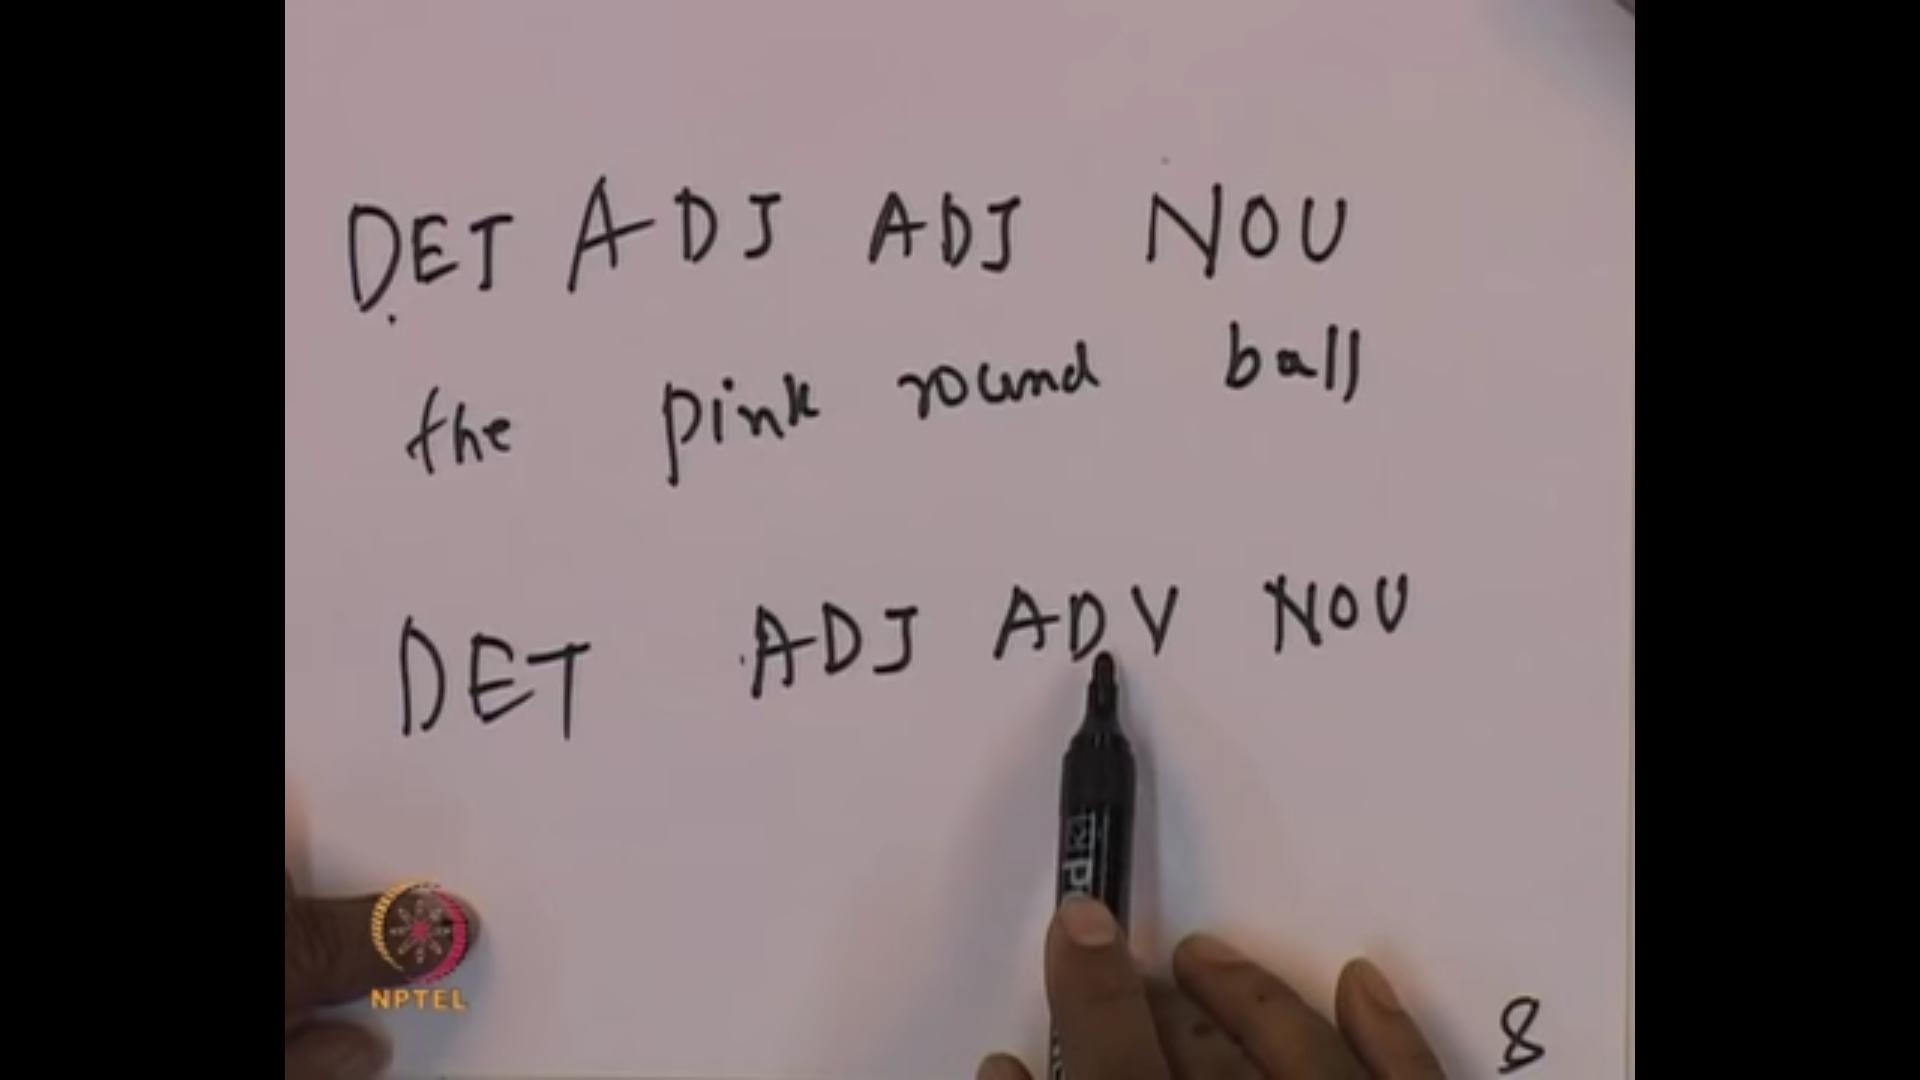 DET ADJ ADJ NOU
the pink round ball
DET ADJ ADV NOU
NPTEL
8